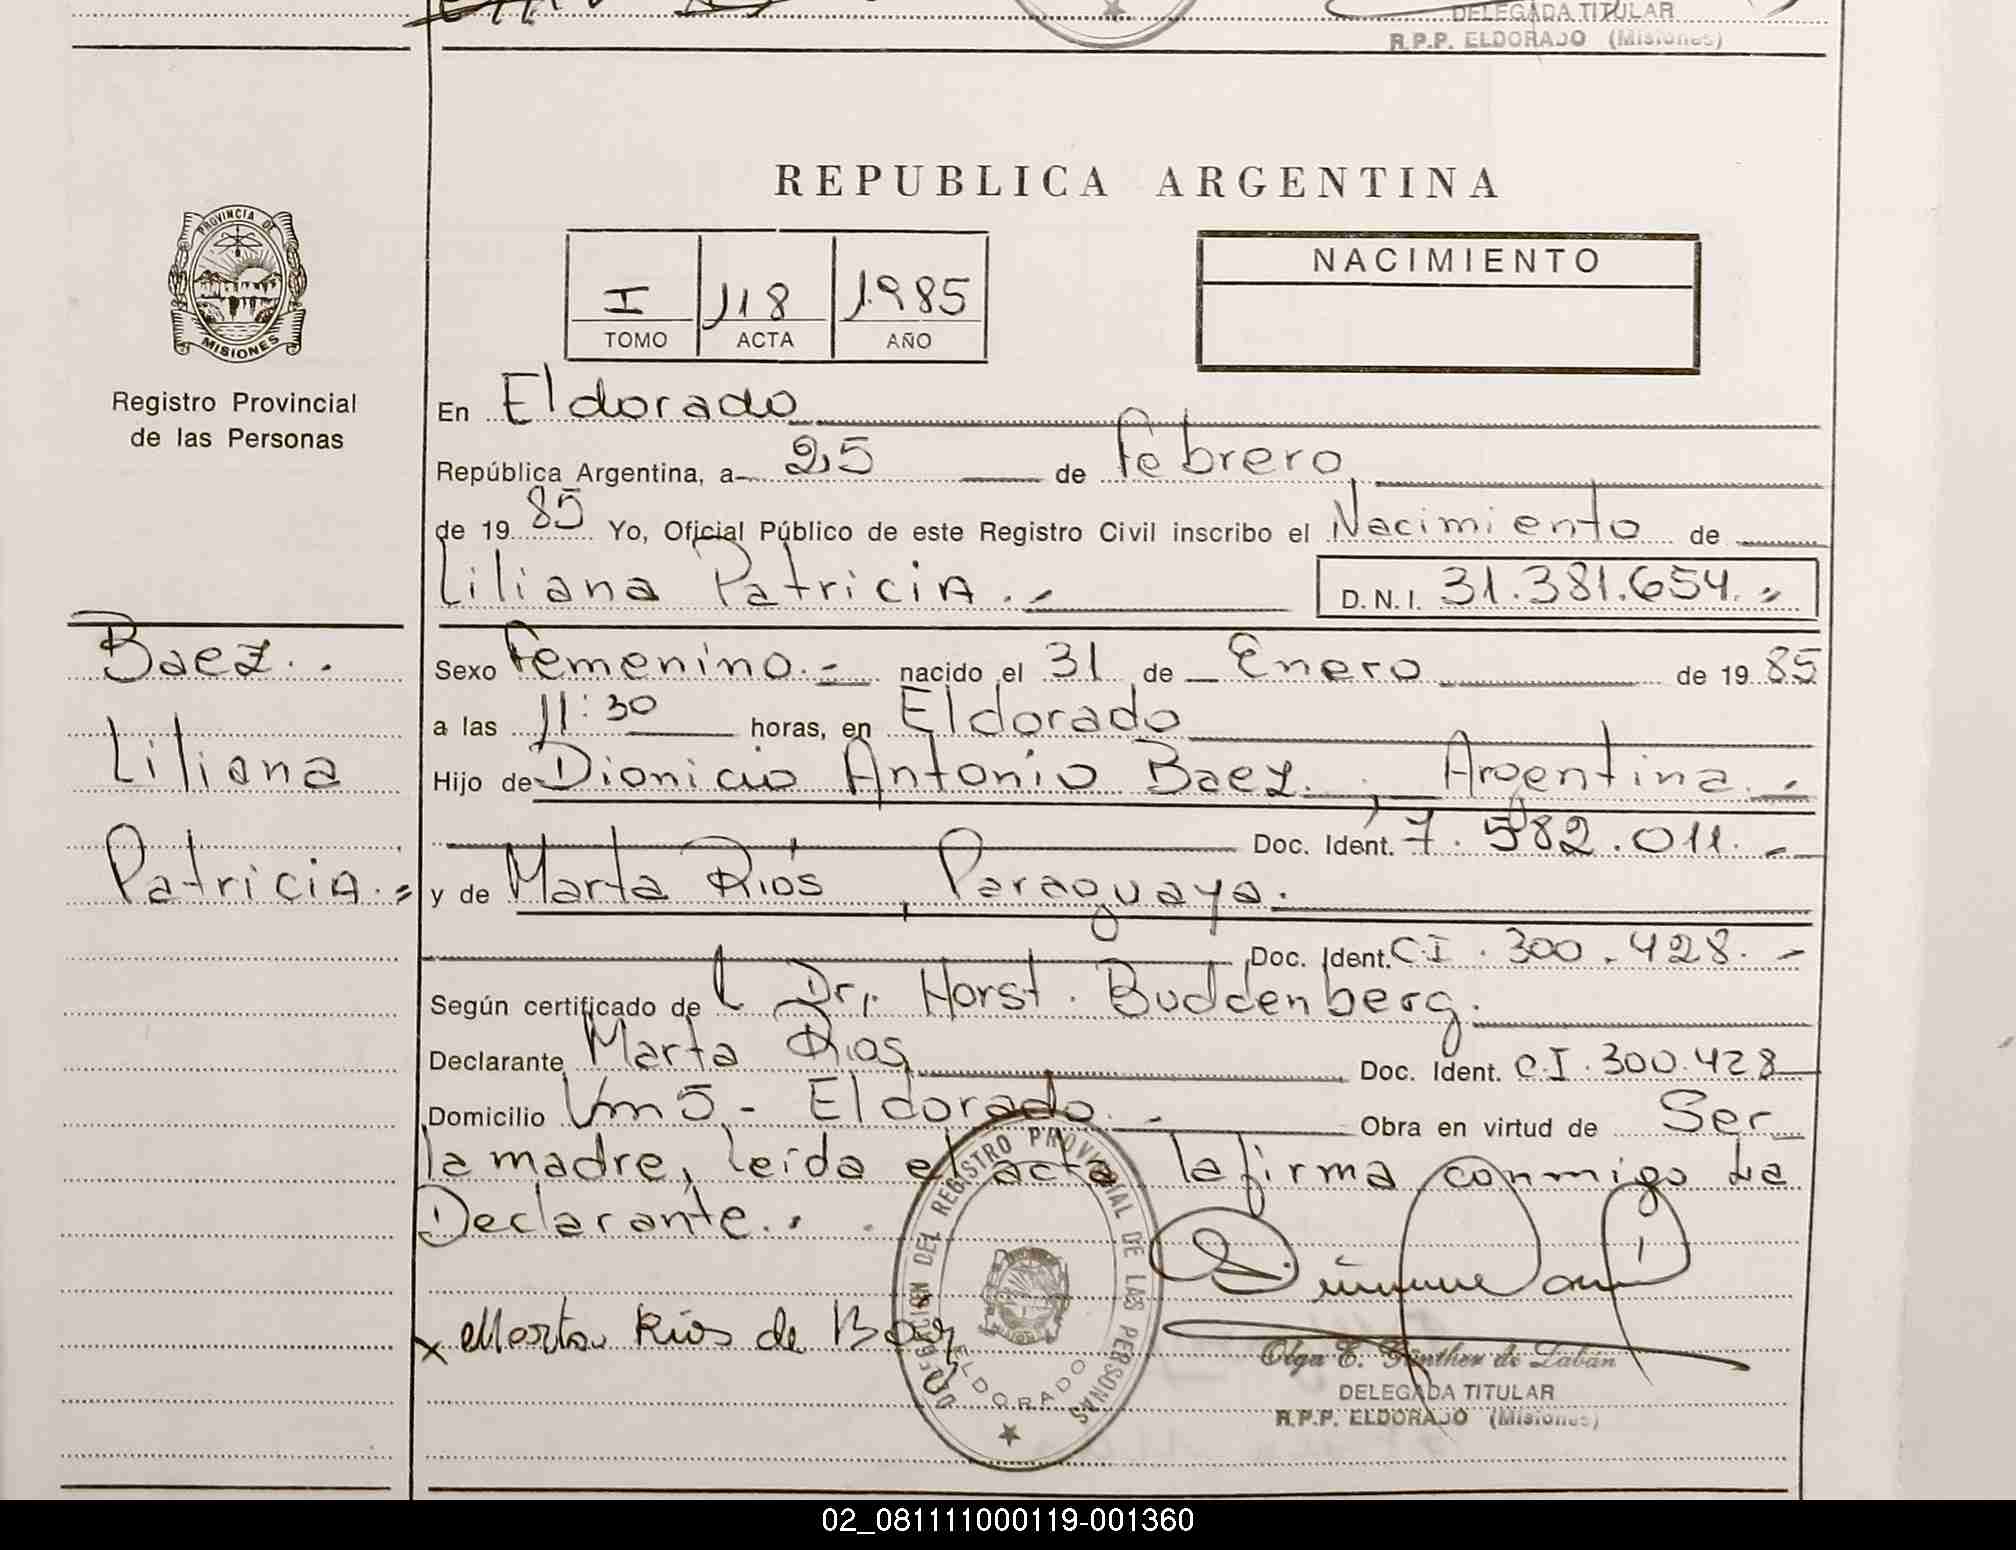 DELEGADA TITULAR
R.P.P. ELDORADO (Misiones)
REPUBLICA ARGENTINA
PROVINCIA DE
MISIONES
Registro Provincial
de las Personas
I 118 1985
TOMO ACTA AÑO
NACIMIENTO
En Eldorado
República Argentina, a 25 de Febrero
de 1985 Yo, Oficial Público de este Registro Civil inscribo el Nacimiento de
Liliana Patricia.- D.N.I. 31.381.654.-
Baez.-
Liliana
Patricia.-
Sexo Femenino.- nacido el 31 de Enero de 1985
a las 11:30 horas, en Eldorado
Hijo de Dionicio Antonio Baez, Argentina.-
Doc. Ident. 7.582.011.-
y de Marta Ríos, Paraguaya.
Doc. Ident. C.I. 300.428.-
Según certificado de Dr. Horst. Buddenberg.
Declarante Marta Rios, Doc. Ident. C.I. 300.428
Domicilio Km 5 - Eldorado.- Obra en virtud de Ser
la madre, leída el acta la firma conmigo la
Declarante.-
x Marta Ríos de Baez
DELEGACION DEL REGISTRO PROVINCIAL DE LAS PERSONAS
ELDORADO
Olga E. Günther de Zabán
DELEGADA TITULAR
R.P.P. ELDORADO (Misiones)
02_081111000119-001360